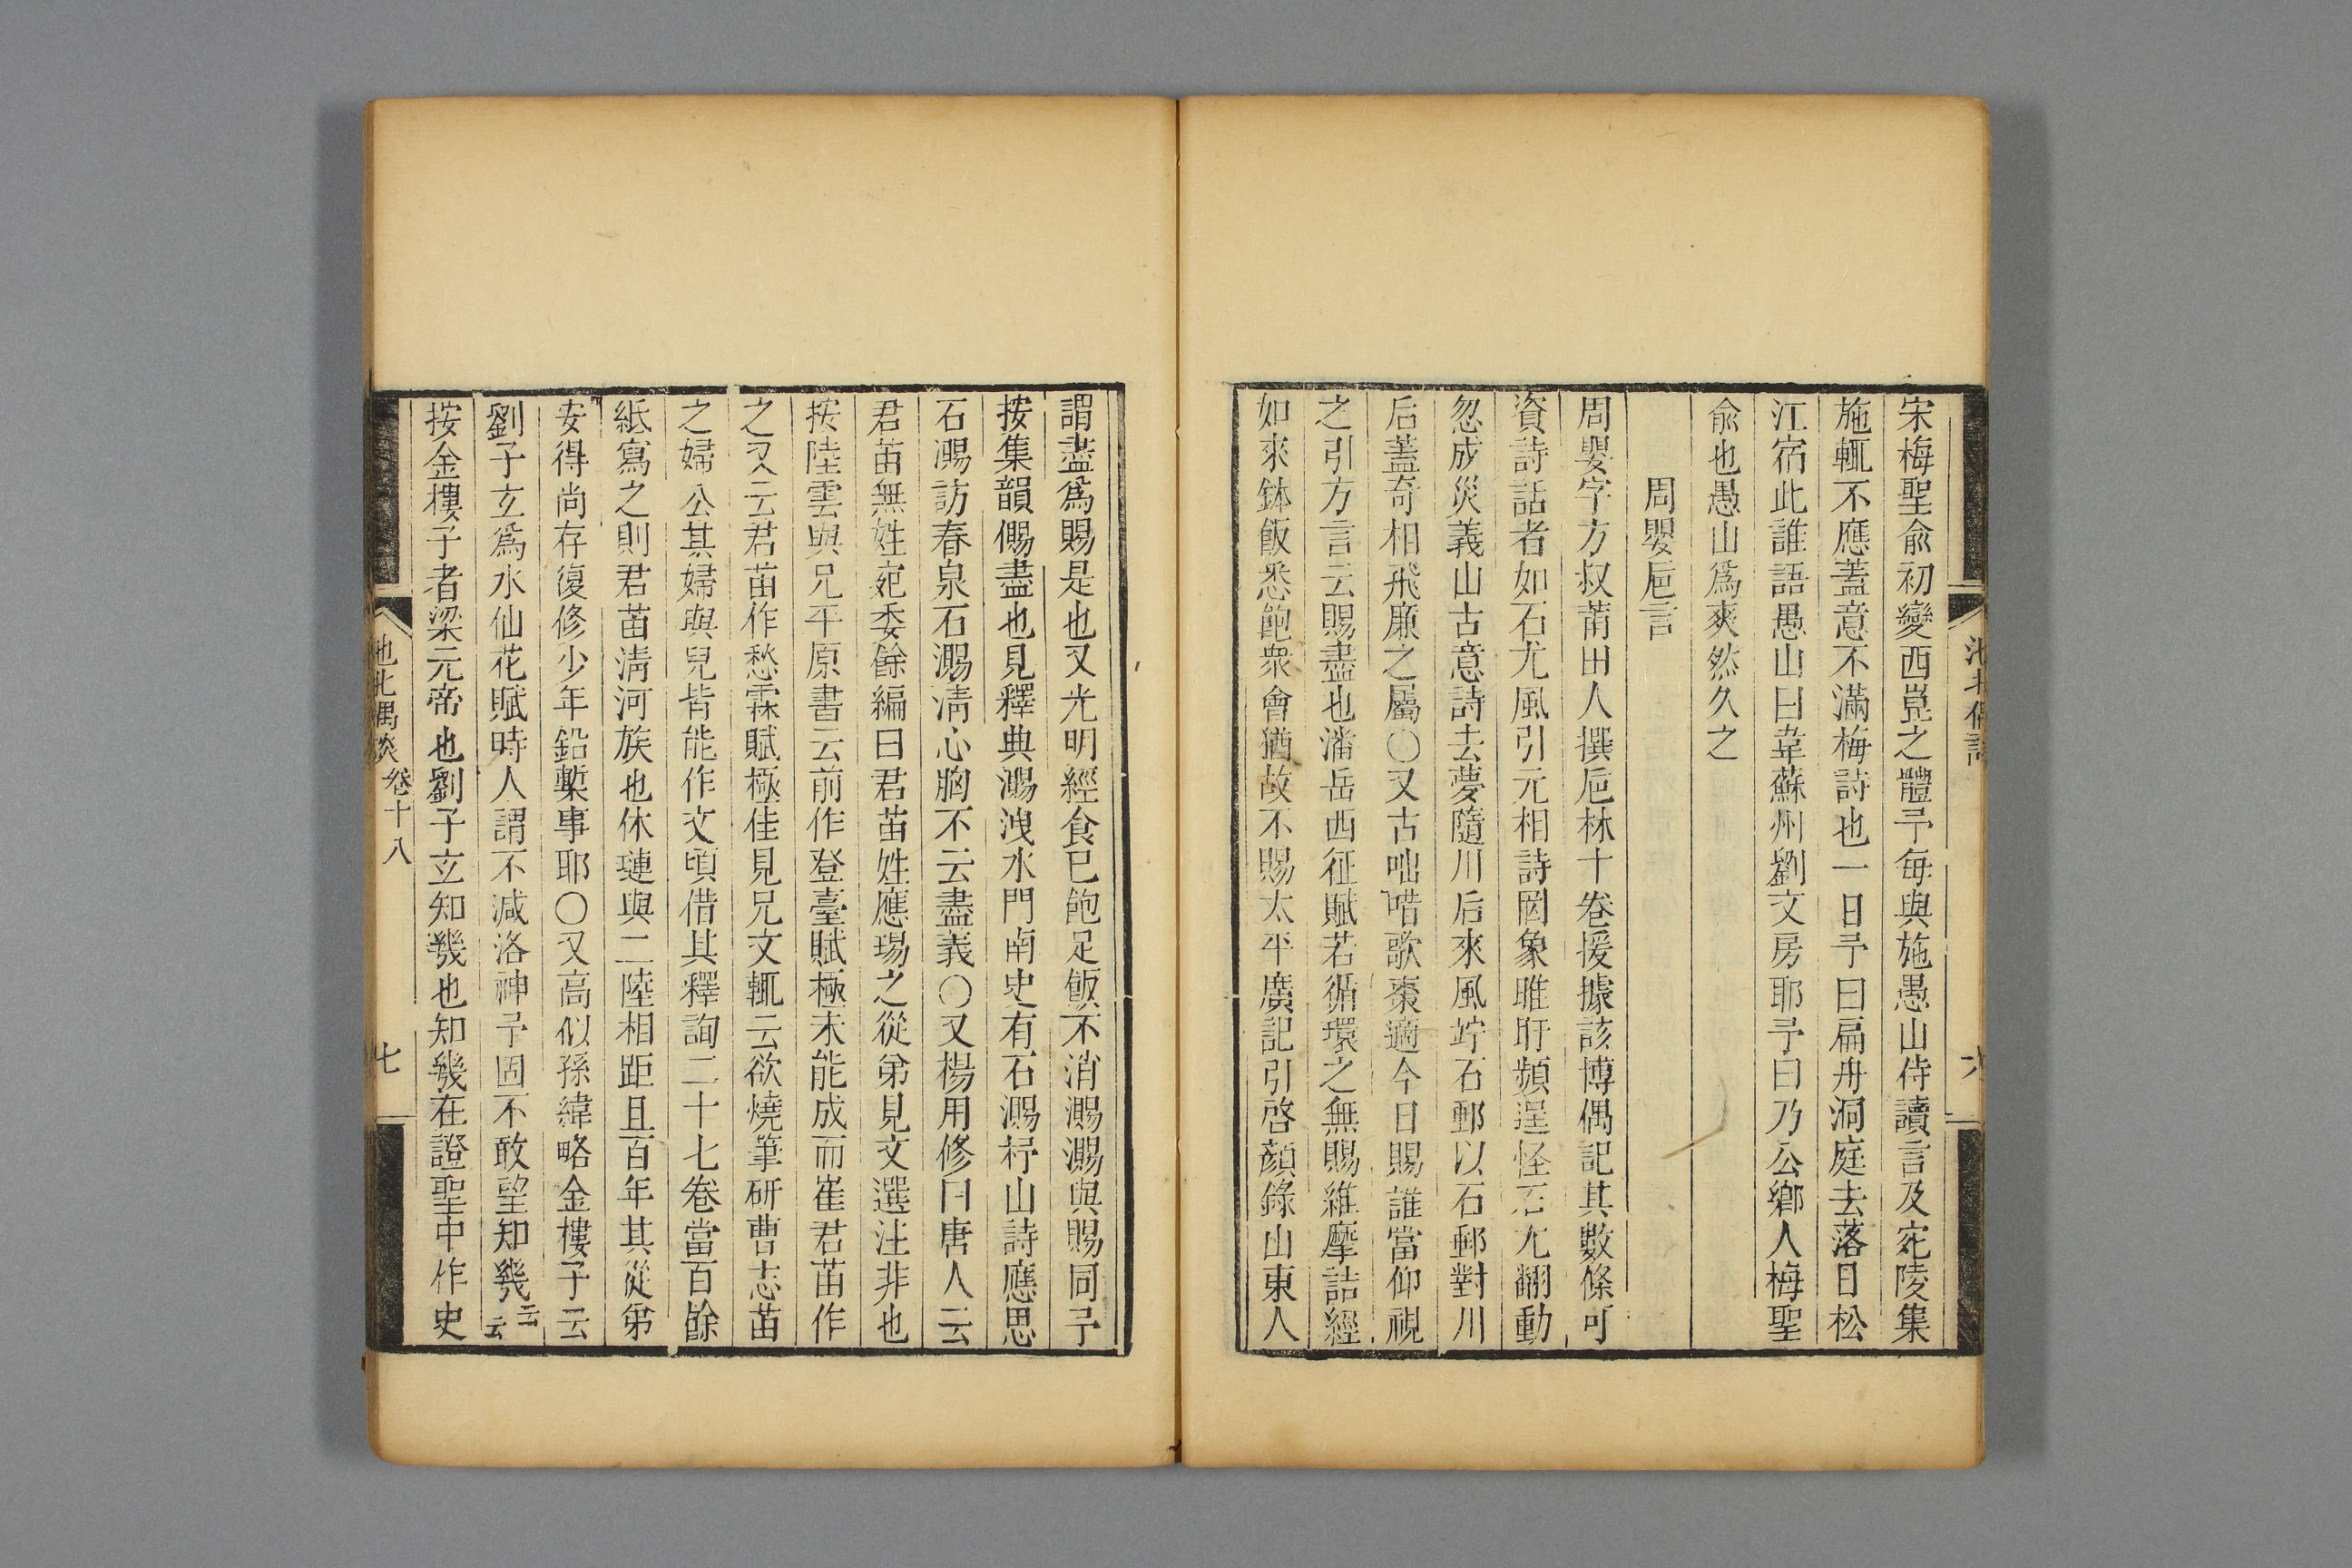 宋梅聖俞初變西崑之體予每與施愚山侍讀言及宛陵集
施輒不應蓋意不滿梅詩也一日予曰扁舟洞庭去落日松
江宿此誰語愚山曰韋蘇州劉文房耶予曰乃公鄉人梅聖
俞也愚山爲爽然久之
周嬰巵言
周嬰字方叔莆田人撰巵林十卷援據該博偶記其數條可
資詩話者如石尤風引元相詩罔象睢盱頻逞怪石尤翻動
忽成災義山古意詩去夢隨川后來風貯石郵以石郵對川
后蓋奇相飛廉之屬〇又古咄唶歌棗適今日賜誰當仰視
之引方言云賜盡也潘岳西征賦若循環之無賜維摩詰經
如來鉢飯悉飽衆會猶故不賜太平廣記引啓顏錄山東人
謂盡爲賜是也又光明經食已飽足飯不消澌澌與賜同予
按集韻儩盡也見釋典澌洩水門南史有石澌杼山詩應思
石澌訪春泉石澌清心胸不云盡義〇又楊用修曰唐人云
君苗無姓宛委餘編曰君苗姓應瑒之從弟見文選注非也
按陸雲與兄平原書云前作登臺賦極未能成而崔君苗作
之又云君苗作愁霖賦極佳見兄文輒云欲燒筆研曹志苗
之婦公其婦與兒皆能作文頃借其釋詢二十七卷當百餘
紙寫之則君苗清河族也休璉與二陸相距且百年其從弟
安得尚存復修少年鉛槧事耶〇又高似孫緯略金樓子云
劉子玄爲水仙花賦時人謂不減洛神予固不敢望知幾云云
按金樓子者梁元帝也劉子玄知幾也知幾在證聖中作史
池北偶談 卷十八 七